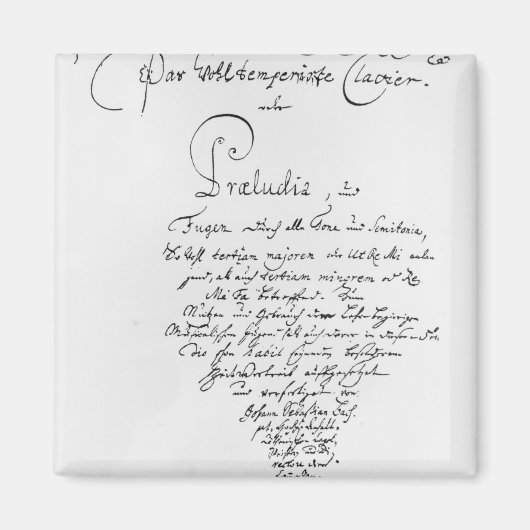 Das Wohltemperirte Clavier.
oder
Præludia, und
Fugen durch alle Tone und Semitonia,
So wohl tertiam majorem oder Ut Re Mi anlan-
gend, als auch tertiam minorem oder Re
Mi Fa betreffend. Zum
Nutzen und Gebrauch der Lehrbegierigen
Musicalischen Jugend, als auch derer in diesem stu-
dio schon habil seyenden besonderem
Zeitvertreib auffgesetzet
und verfertiget von
Johann Sebastian Bach.
p. t. Hochfürstlich Anhalt-